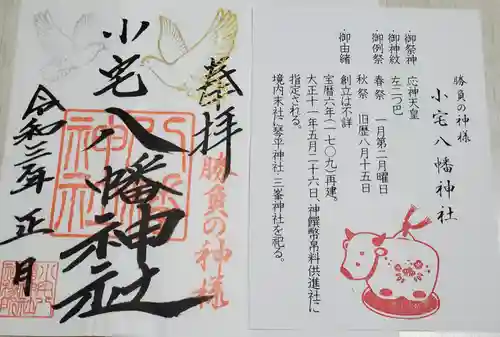 奉拝
勝負の神様
小宅八幡神社
令和三年 正月
八幡
神社
勝負の神様
小宅八幡神社
・御祭神 応神天皇
・御神紋 左二つ巴
・御例祭 春祭 一月第二月曜日
秋祭 旧暦八月十五日
・御由緒 創立は不詳
宝暦六年(一七〇九)再建。
大正十一年五月二十六日、神饌幣帛料供進社に
指定される。
境内末社に琴平神社 三峯神社を祀る。